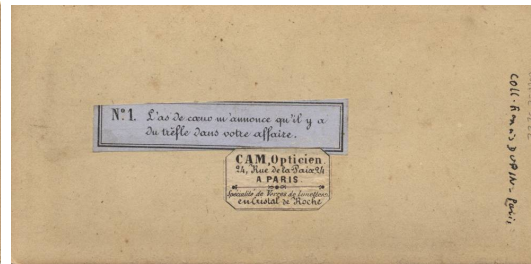 N.º 1. L'as de cœur m'annonce qu'il y a
du trèfle dans votre affaire.
CAM, Opticien
24, Rue de la Paix 24
A PARIS
Spécialité de Verres de lunettes
en Cristal de Roche
Coll. Romàs DUPIN - Paris